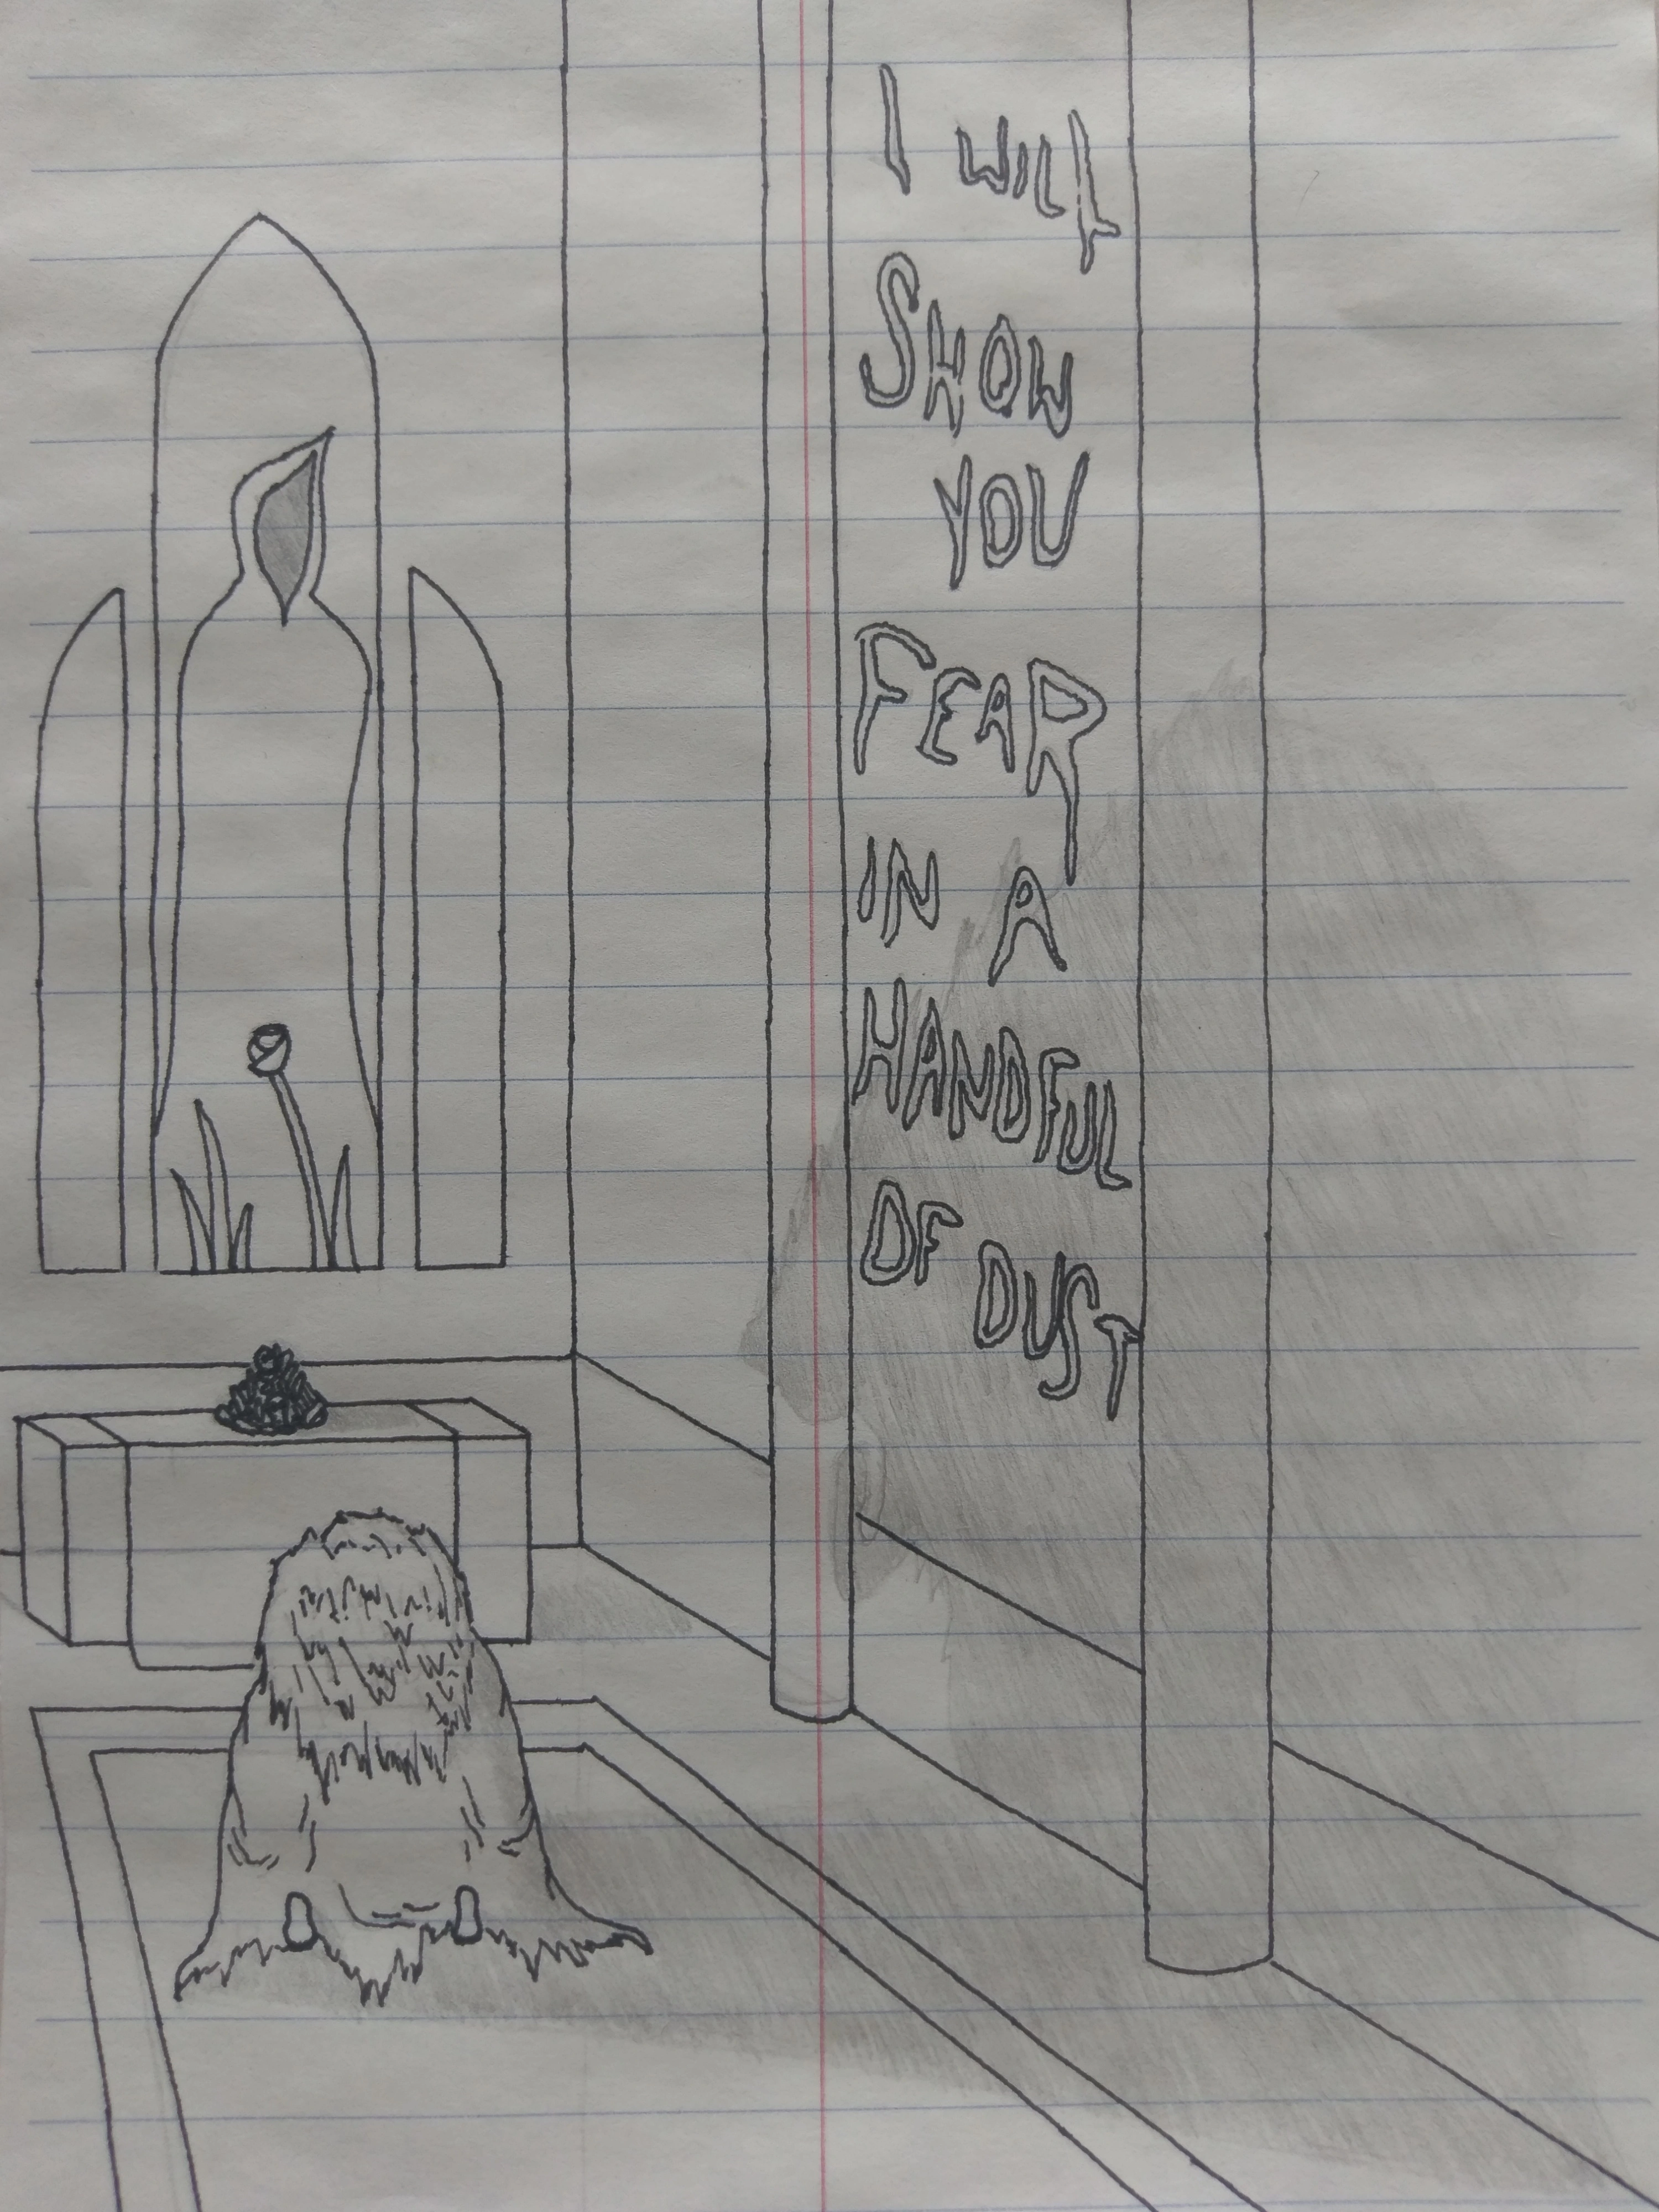 I WILL
SHOW
YOU
FEAR
IN A
HANDFUL
OF DUST